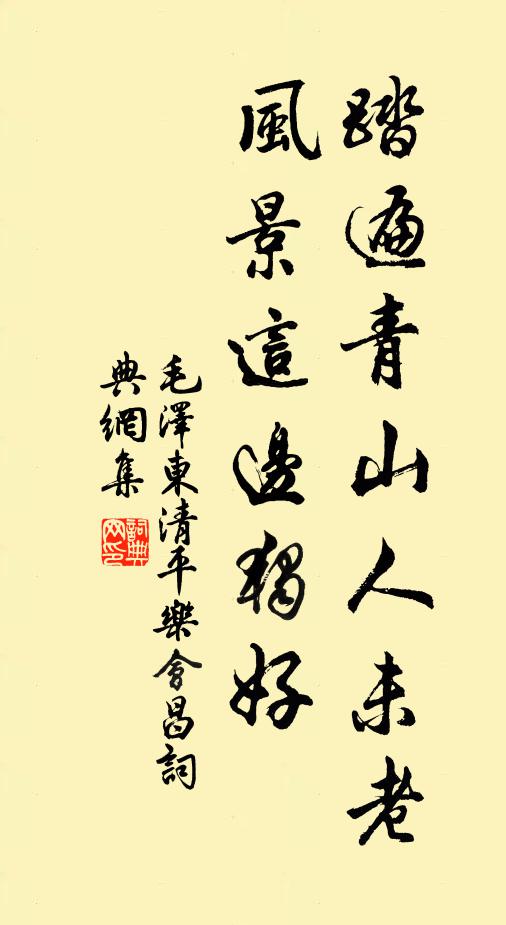 踏遍青山人未老
風景這邊獨好
毛澤東清平樂會昌詞
典網集
詞典網印